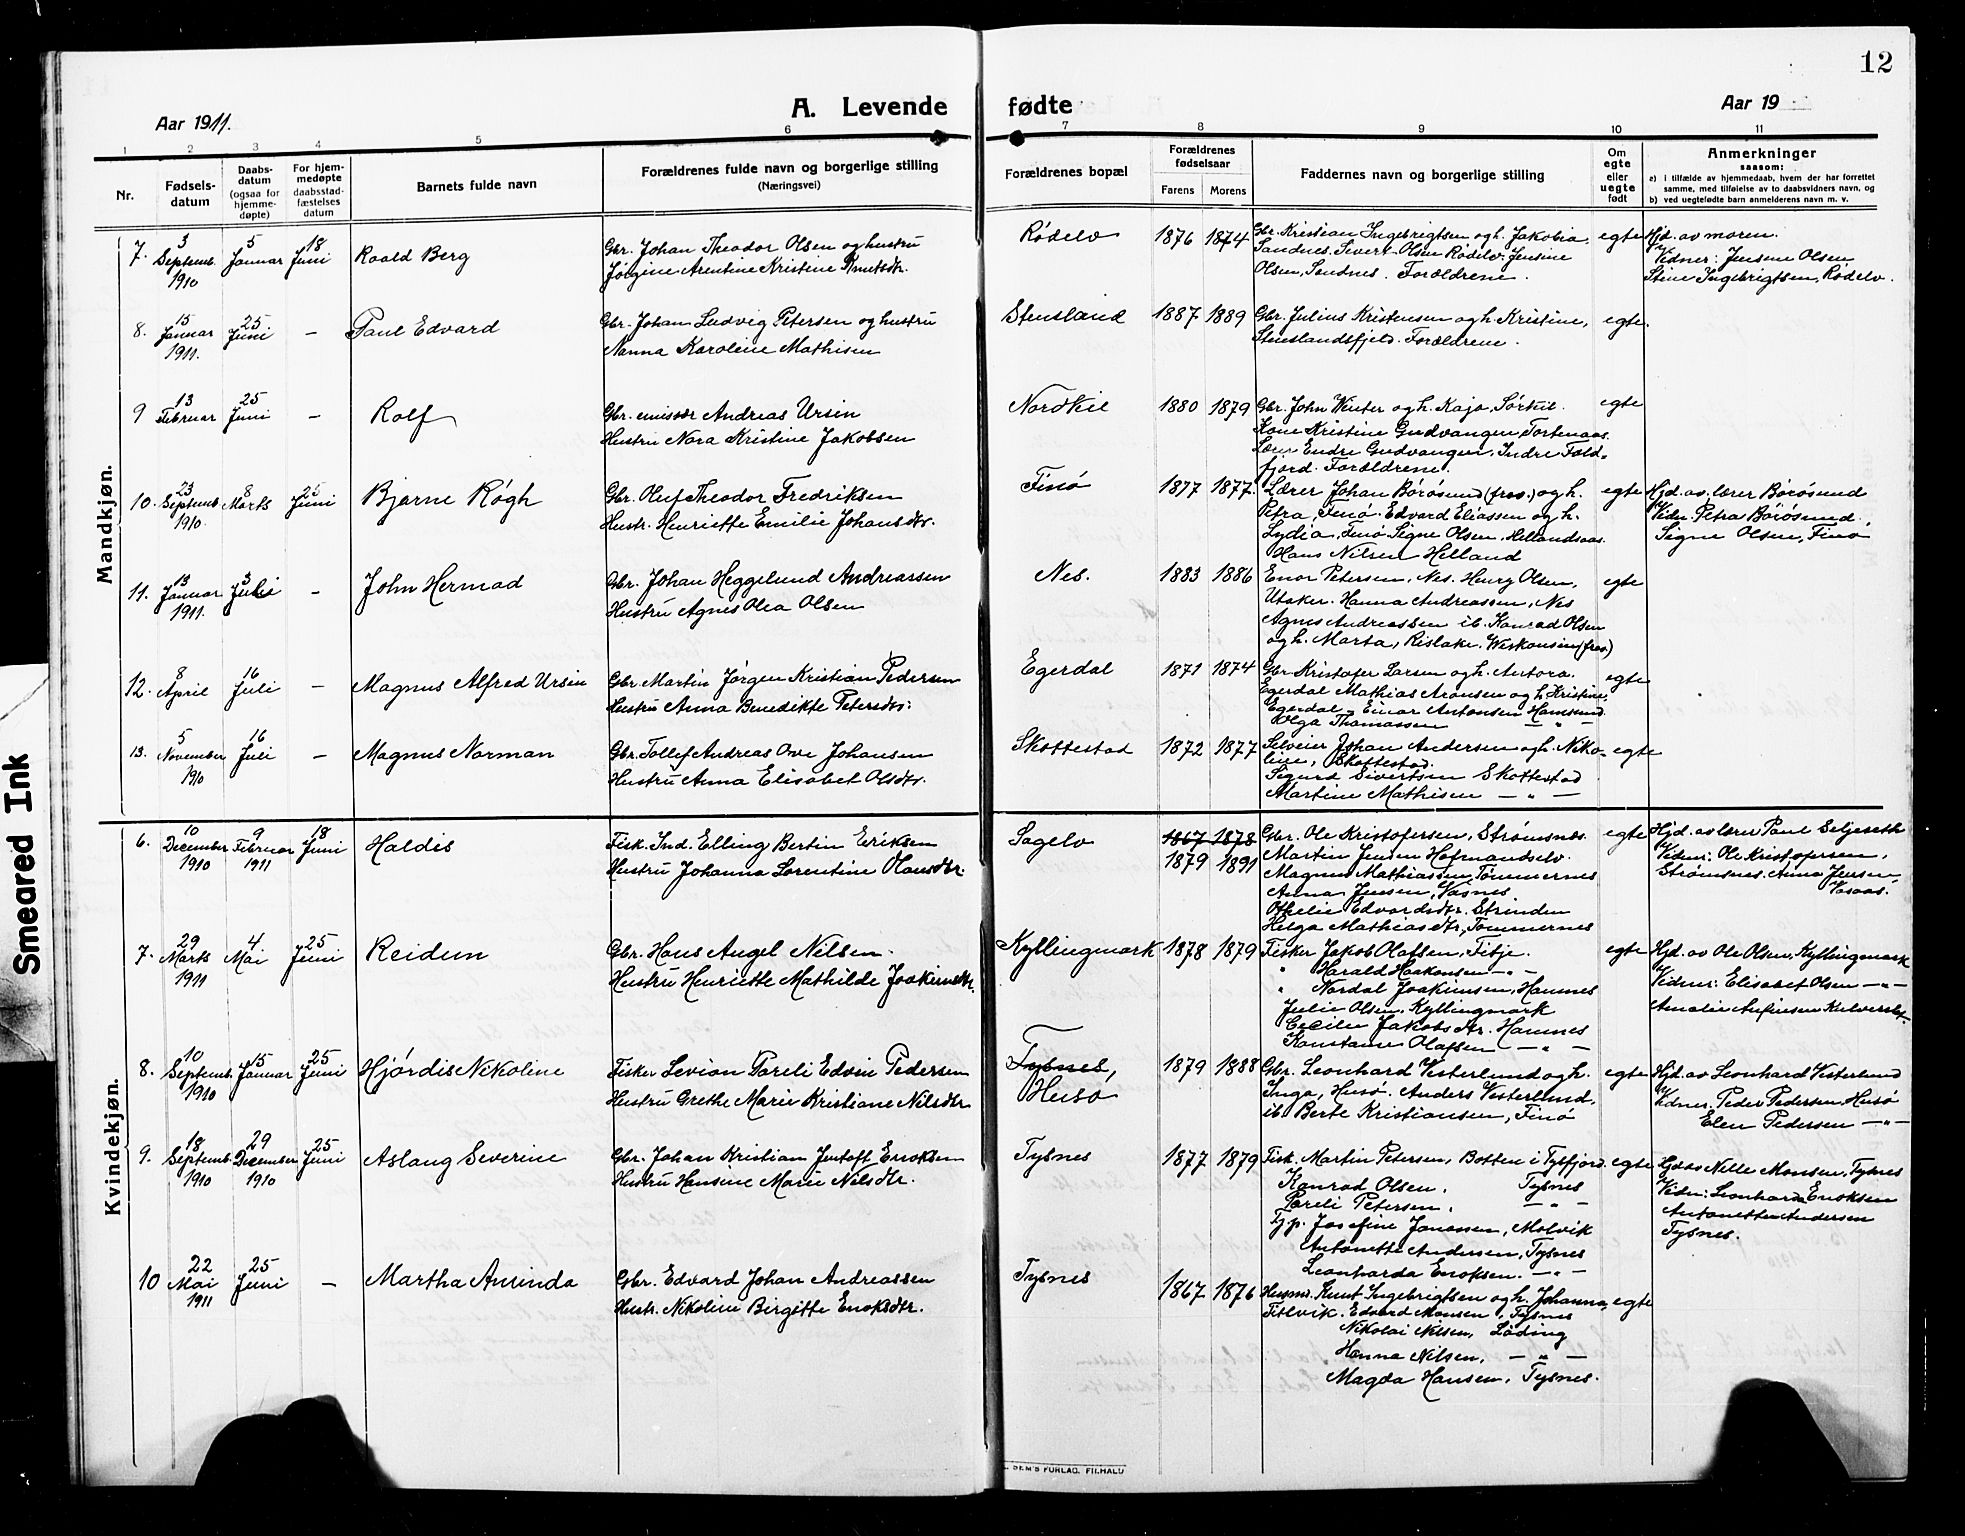 12
A. Levende fødte
Aar 1911.
Aar 19
1 2 3 4 5 6 7 8 9 10 11
Nr.
Fødsels-
datum
Daabs-
datum
(ogsaa for
hjemme-
døpte)
For hjem-
medøpte
daabsstad-
fæstelses
datum
Barnets fulde navn
Forældrenes fulde navn og borgerlige stilling
(Næringsvei)
Forældrenes bopæl
Forældrenes
fødselsaar
Farens Morens
Faddernes navn og borgerlige stilling
Om
egte
eller
uegte
født
Anmerkninger
saasom:
a) i tilfælde av hjemmedaab, hvem der har forrettet
samme, med tilføielse av to daabsvidners navn, og
b) ved uegtefødte barn anmelderens navn m. v.
Mandkjøn.
7. 3 Septemb. 1910 5 Januar 18 Juni Roald Berg
Gbr. Johan Theodor Olsen og hustru
Jørgine Arentine Kristine Knutsdtr.
Rødelv 1876 1874
Gbr. Kristian Ingebrigtsen og h. Jakobia,
Sandnes. Sivert Olsen Rødelv. Jensine
Olsen, Sandnes. Forældrene.
egte
Hjd. av moren.
Vidner: Jensine Olsen
Stine Ingebrigtsen, Rødelv.
8. 15 Januar 1911. 25 Juni – Paul Edvard
Gbr. Johan Ludvig Petersen og hustru
Nanna Karoline Mathisen
Stensland 1887 1889
Gbr. Julius Kristensen og h. Kristine,
Stenslandsfjeld. Forældrene.
egte.
9 13 Februar 25 Juni – Rolf
Gbr. emissær Andreas Ursin
Hustru Nora Kristine Jakobsen
Nordkil 1880 1879
Gbr. John Winter og h. Kaja, Sørkil.
Kone Kristine Gudvangen, Tortenaas.
Lærer Endre Gudvangen, Indre Fold-
fjord. Forældrene.
egte
10. 23 Septemb. 1910. 8 Marts 25 Juni Bjarne Røgh
Gbr. Oluf Theodor Fredriksen
Hustr. Henriette Emilie Johansdtr.
Finø 1877 1877.
Lærer Johan Börösund (frav.) og h.
Petra, Finø. Edvard Eliassen og h.
Lydia, Finø Signe Olsen, Hellandsaas.
Hans Nilsen Helland
egte
Hjd. av lærer Börösund
Vidn. Petra Börösund.
Signe Olsen, Finø
11. 13 Januar 1911. 3 Juli – John Hermod
Gbr. Johan Heggelund Andreassen
Hustru Agnes Olea Olsen
Nes. 1883 1886
Enor Petersen, Nes. Henry Olsen,
Utaker. Hanna Andreassen, Nes
Agnes Andreassen ib. Konrad Olsen
og h. Marta, Rislake, Wiskonsin (frav.)
egte
12. 8 April 16 Juli – Magnus Alfred Ursin
Gbr. Martin Jørgen Kristian Pedersen
Hustru Anna Benedikte Petersdtr.
Egerdal 1871 1874
Gbr. Kristofer Larsen og h. Antora.
Egerdal Mathias Aronsen og h. Kristine,
Egerdal. Einar Antonsen Hamsund.
Olga Thomassen — " —
egte
13. 5 November 1910 16 Juli – Magnus Norman
Gbr. Tollef Andreas Ove Johansen
Hustru Anna Elisabet Olsdtr.
Skottestad 1872 1877
Selveier Johan Andersen og h. Niko-
line, Skottestad.
Sigurd Sivertsen Skottestad
Martine Mathisen — " —
egte
Kvindekjøn.
6. 10 December 1910 9 Februar 1911 18 Juni Haldis
Fisk. Ind. Elling Bertin Eriksen
Hustru Johanna Lorentine Hansdtr.
Sagelv 1867 1878
1879 1891
Gbr. Ole Kristofersen, Strømsnes.
Martin Jensen Hofmandselv.
Magnus Mathiassen, Tømmernes
Anna Jensen, Vasnes
Othelie Edvardsdtr. Strinden
Helga Mathiasdtr, Tømmernes
egte
Hjd. av lærer Paul Seljeseth
Vidner: Ole Kristofersen,
Strømsnes. Anna Jensen,
7. 29 Marts 1911 4 Mai 25 Juni Reidun
Gbr. Hans Angel Nilsen.
Hustru Henriette Mathilde Joakimsdtr.
Kyllingmark 1878 1879
Fisker Jakob Olafsen, Fitje.
" Harald Haakonsen — " —
" Nordal Joakimsen, Hamnes
Julie Olsen, Kyllingmark
Cecilie Jakobsdtr. Hamnes
Konstanse Olafsen — " —
egte
Hjd. av Ole Olsen, Kyllingmark
Vidner: Elisabet Olsen — " —
Amalie
8. 10 Septemb. 1910 15 Januar 25 Juni Hjørdis Nikoline
Fisker Levion Pareli Edvin Pedersen
Hustru Grethe Marie Kristiane Nilsdtr
Tysnes,
Husø 1879 1888
Gbr. Leonhard Vesterlund og h.
Inga, Husø. Anders Vesterlund,
ib. Berte Kristiansen, Finø
egte
Hjd. av Leonhard Vesterlund
Vidner. Peder Pedersen Husø
Elen Pedersen — " —
9. 18 Septemb. 1910 29 December 1910 25 Juni Aslaug Severine
Gbr. Johan Kristian Jentoft Enoksen
Hustru Hansine Marie Nilsdtr.
Tysnes 1877 1879
Fisk. Martin Petersen, Botten i Tysfjord.
Konrad Olsen. Tysnes
Pareli Petersen. — " —
Tjp. Josefine Jonassen, Molvik
Antonette Andersen, Tysnes
Leonharda Enoksen. — " —
egte
Nelle Monsen, Tysnes
Vidn: Leonharda Enoksen
Antonette Andersen
Tysnes.
10 22 Mai 1911 25 Juni – Martha Aminda
Gbr. Edvard Johan Andreassen
Hustr. Nikoline Birgitte Enoksdtr.
Tysnes 1867 1876
Husmd. Knut Ingebrigtsen og h. Johanna,
Fitlvik. Edvard Monsen, Tysnes
Nikolai Nilsen, Løding
Hanna Nilsen, — " —
Magda Hansen, Tysnes.
egte
SEM'S FORLAG, F.HALD
Smeared Ink